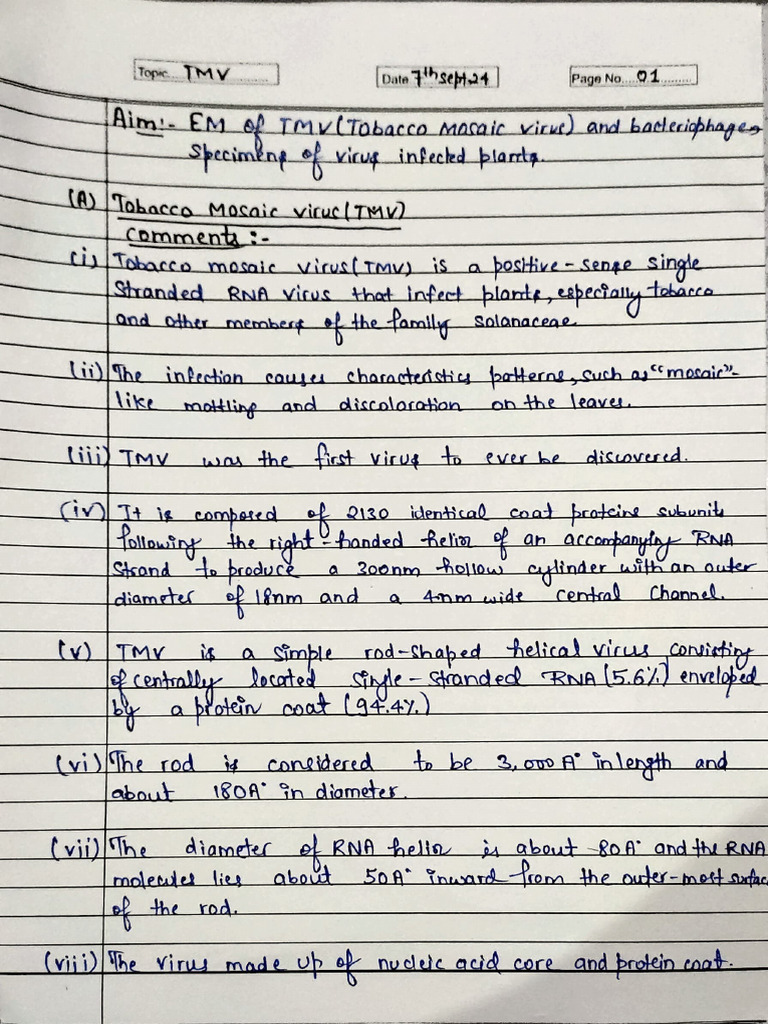 Topic TMV
Date 7th Sept, 24
Page No. 01
Aim:- EM of TMV (Tobacco Mosaic virus) and bacteriophage,
Specimens of virus infected plants.
(A) Tobacco Mosaic virus (TMV)
Comments :-
(i) Tobacco mosaic virus (TMV) is a positive-sense single
Stranded RNA virus that infect plants, especially tobacco
and other members of the family Solanaceae.
(ii) The infection causes characteristics patterns, such as "mosaic"-
like mottling and discoloration on the leaves.
(iii) TMV was the first virus to ever be discovered.
(iv) It is composed of 2130 identical coat proteins subunits
following the right-handed helix of an accompanying RNA
Strand to produce a 300nm hollow cylinder with an outer
diameter of 18nm and a 4nm wide central Channel.
(v) TMV is a simple rod-shaped helical virus consisting
of centrally located single-stranded RNA (5.6%) enveloped
by a protein coat (94.4%)
(vi) The rod is considered to be 3,000 A° in length and
about 180A° in diameter.
(vii) The diameter of RNA helix is about 80A° and the RNA
molecules lies about 50A° inward from the outer-most surfac
of the rod.
(viii) The virus made up of nucleic acid core and protein coat.